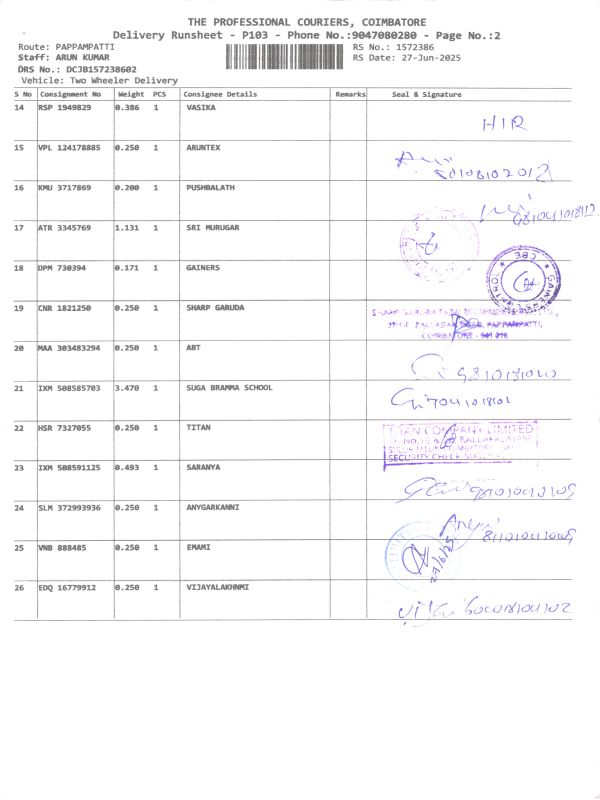 THE PROFESSIONAL COURIERS, COIMBATORE
Delivery Runsheet - P103 - Phone No.:9047080280 - Page No.:2
Route: PAPPAMPATTI
RS No.: 1572386
Staff: ARUN KUMAR
RS Date: 27-Jun-2025
DRS No.: DCJB157238602
Vehicle: Two Wheeler Delivery
S No Consignment No Weight PCS Consignee Details Remarks Seal & Signature
14 RSP 1949829 0.386 1 VASIKA
15 VPL 124178885 0.250 1 ARUNTEX
16 KMU 3717869 0.200 1 PUSHBALATH
17 ATR 3345769 1.131 1 SRI MURUGAR
18 DPM 730394 0.171 1 GAINERS
CBE
19 CNR 1821250 0.250 1 SHARP GARUDA
PAPPAMPATTI,
20 MAA 303483294 0.250 1 ABT
21 IXM 508585703 3.470 1 SUGA BRAMMA SCHOOL
22 HSR 7327055 0.250 1 TITAN
TITAN COMPANY LIMITED
SECURITY CHECK
23 IXM 508591125 0.493 1 SARANYA
24 SLM 372993936 0.250 1 ANYGARKANNI
25 VNB 888485 0.250 1 EMAMI
27/6/25
26 EDQ 16779912 0.250 1 VIJAYALAKHNMI